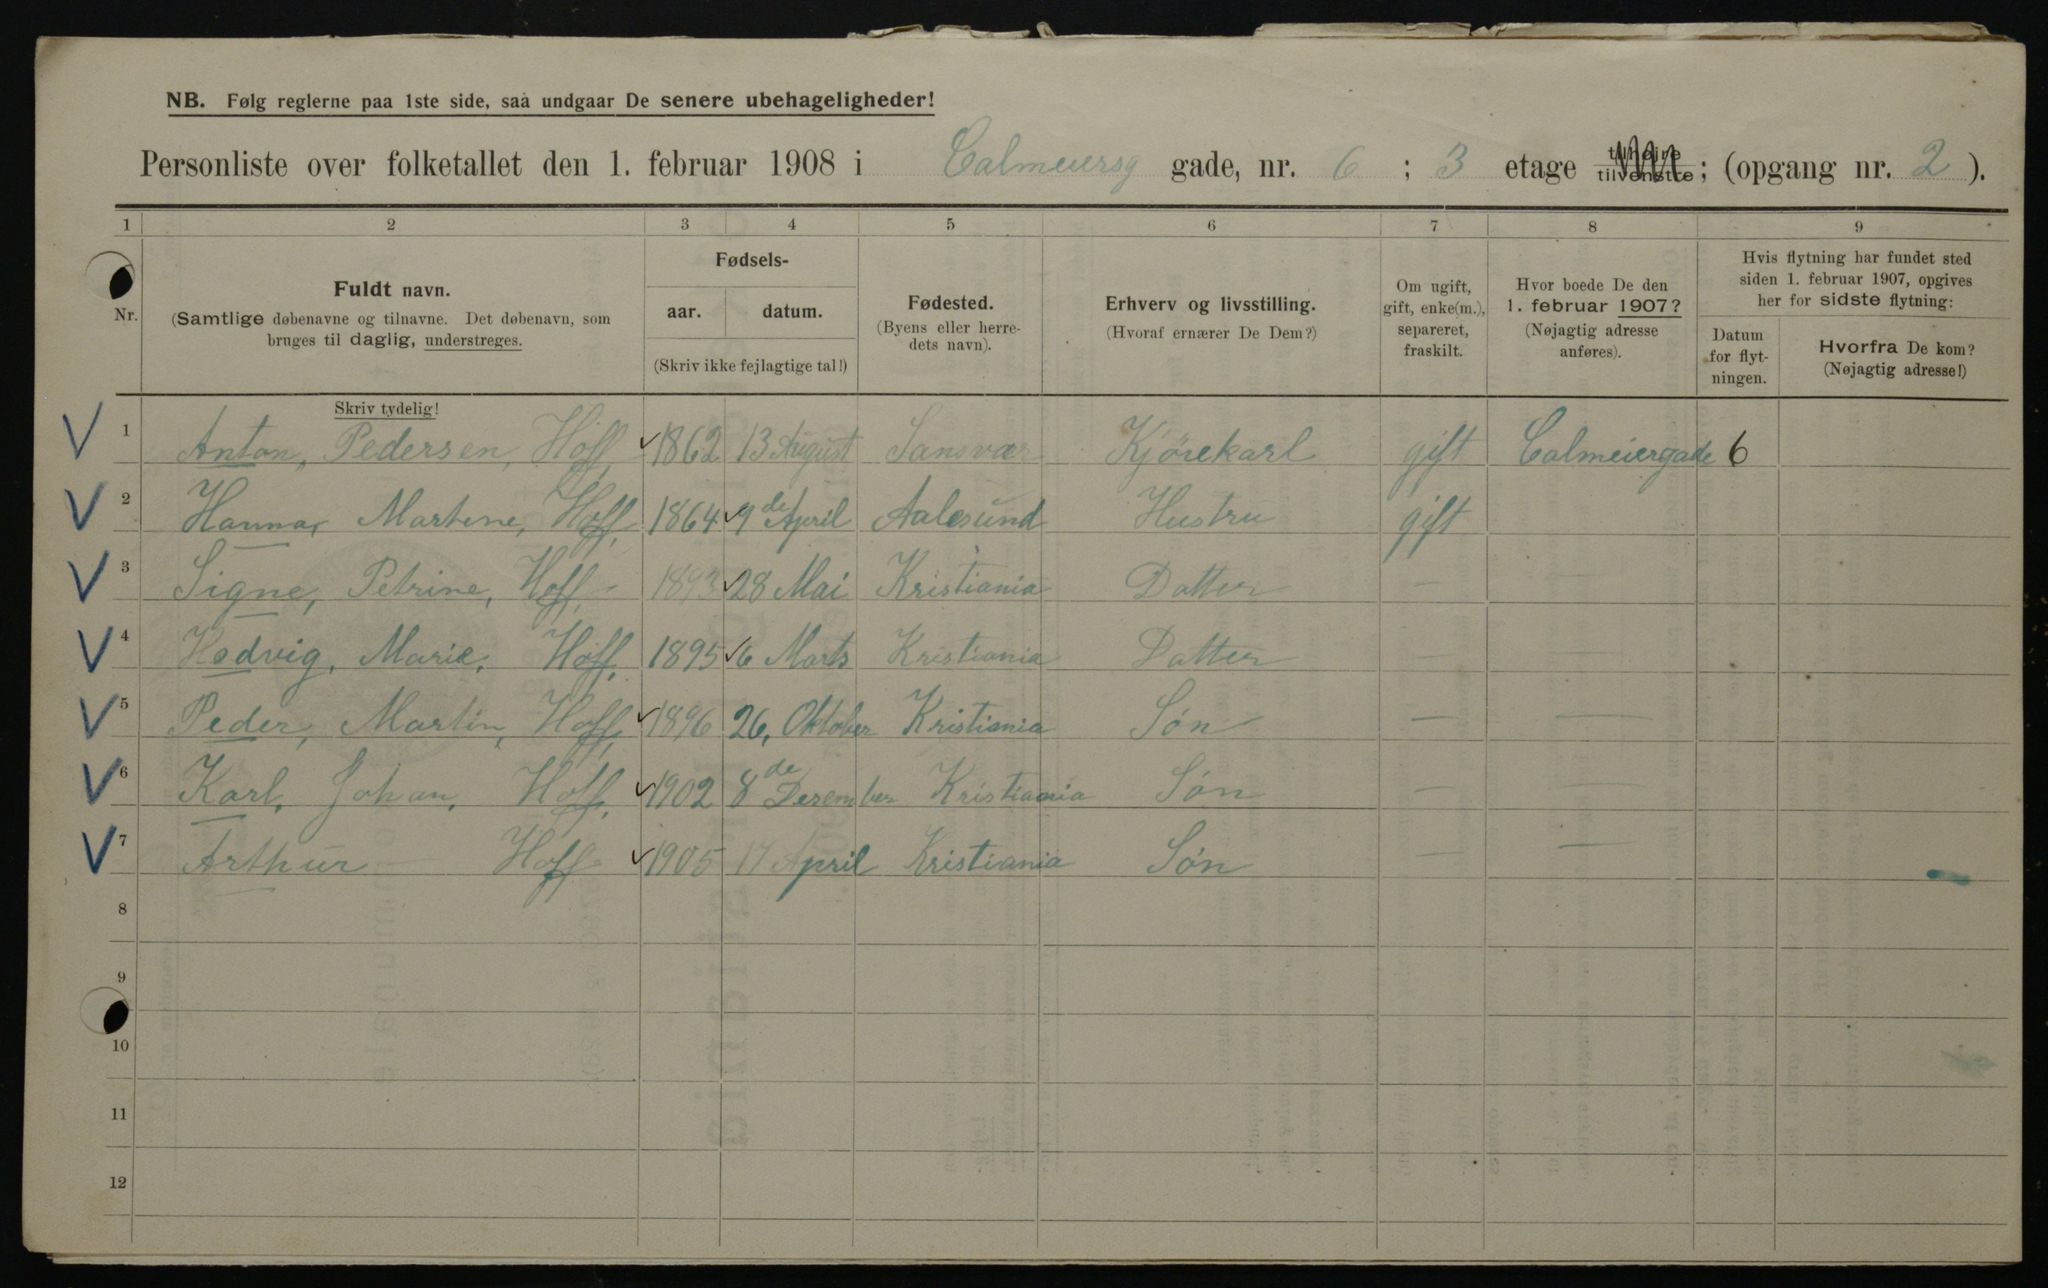 NB. Følg reglerne paa 1ste side, saa undgaar De senere ubehageligheder!
Personliste over folketallet den 1. februar 1908 i Calmeiersg gade, nr. 6 ; 3 etage tilhøjre tilvenstre ; (opgang nr. 2 ).
1 2 3 4 5 6 7 8 9
Nr.
Fuldt navn.
(Samtlige døbenavne og tilnavne. Det døbenavn, som
bruges til daglig, understreges.
Skriv tydelig!
Fødsels-
aar. datum.
(Skriv ikke fejlagtige tal!)
Fødested.
(Byens eller herre-
dets navn).
Erhverv og livsstilling.
(Hvoraf ernærer De Dem?)
Om ugift,
gift, enke(m.),
separeret,
fraskilt.
Hvor boede De den
1. februar 1907?
(Nøjagtig adresse
anføres).
Hvis flytning har fundet sted
siden 1. februar 1907, opgives
her for sidste flytning:
Datum
for flyt-
ningen.
Hvorfra De kom?
(Nøjagtig adresse!)
V 1 Anton, Pedersen, Hoff ✓ 1862 13 August Sansvær Kjörekarl gift Calmeiergade 6
V 2 Hanna, Martine, Hoff, 1864 ✓ 9de April Aalesund Hustru gift
V 3 Signe, Petrine, Hoff, 1893 ✓ 28 Mai Kristiania Datter — —
V 4 Hedvig, Marie, Hoff, 1895 ✓ 6 Marts Kristiania Datter — —
V 5 Peder, Martin, Hoff, ✓ 1896 26, Oktober Kristiania Són — —
V 6 Karl, Johan, Hoff, ✓ 1902 8de Desember Kristiania Són — —
V 7 Arthur — Hoff ✓ 1905 17 April Kristiania Són — —
8
9
10
11
12